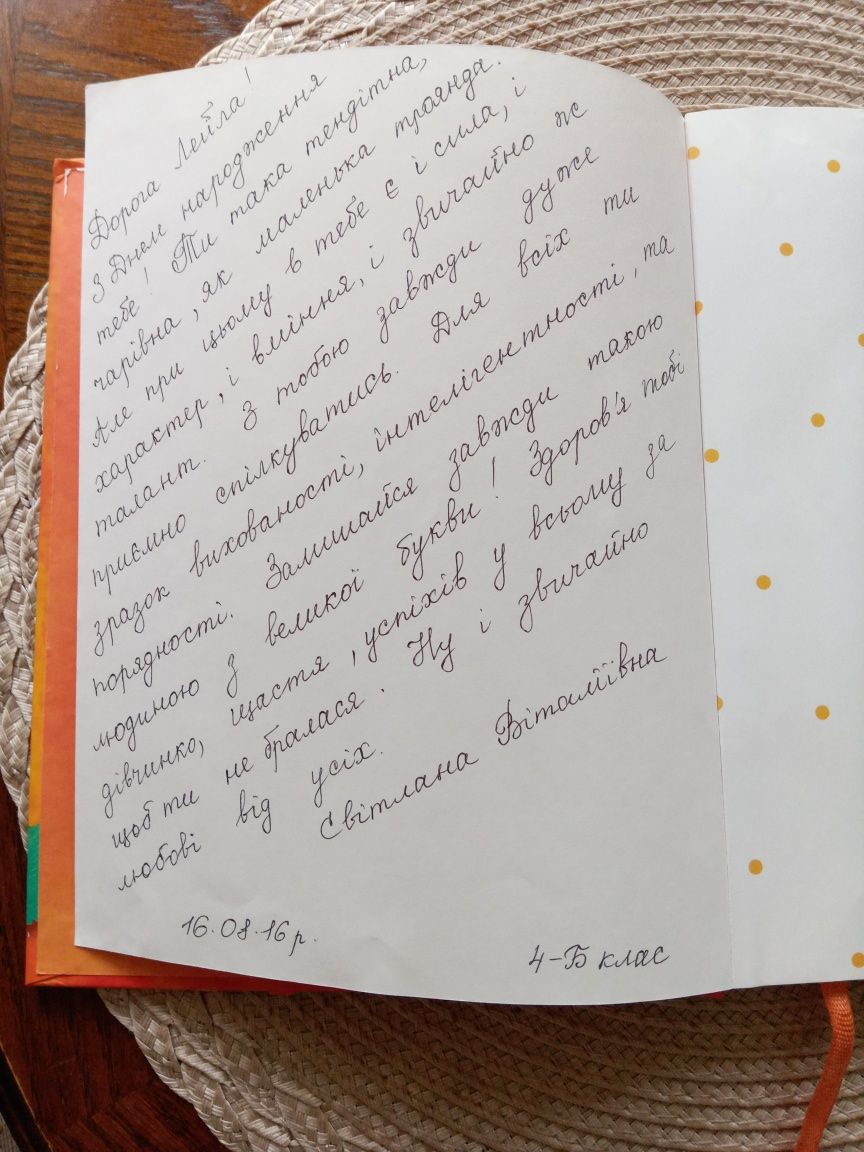 Дорога Лейла!
З Днем народження
тебе! Ти така тендітна,
чарівна, як маленька троянда.
Але при цьому в тебе є і сила, і
характер, і вміння, і звичайно ж
талант. З тобою завжди дуже
приємно спілкуватись. Для всіх ти
зразок вихованості, інтелігентності, та
порядності. Залишайся завжди такою
людиною з великої букви! Здоров'я тобі
дівчинко, щастя, успіхів у всьому за
щоб ти не бралася. Ну і звичайно
любові від усіх.
Світлана Віталіївна
16.08.16 р.
4-Б клас